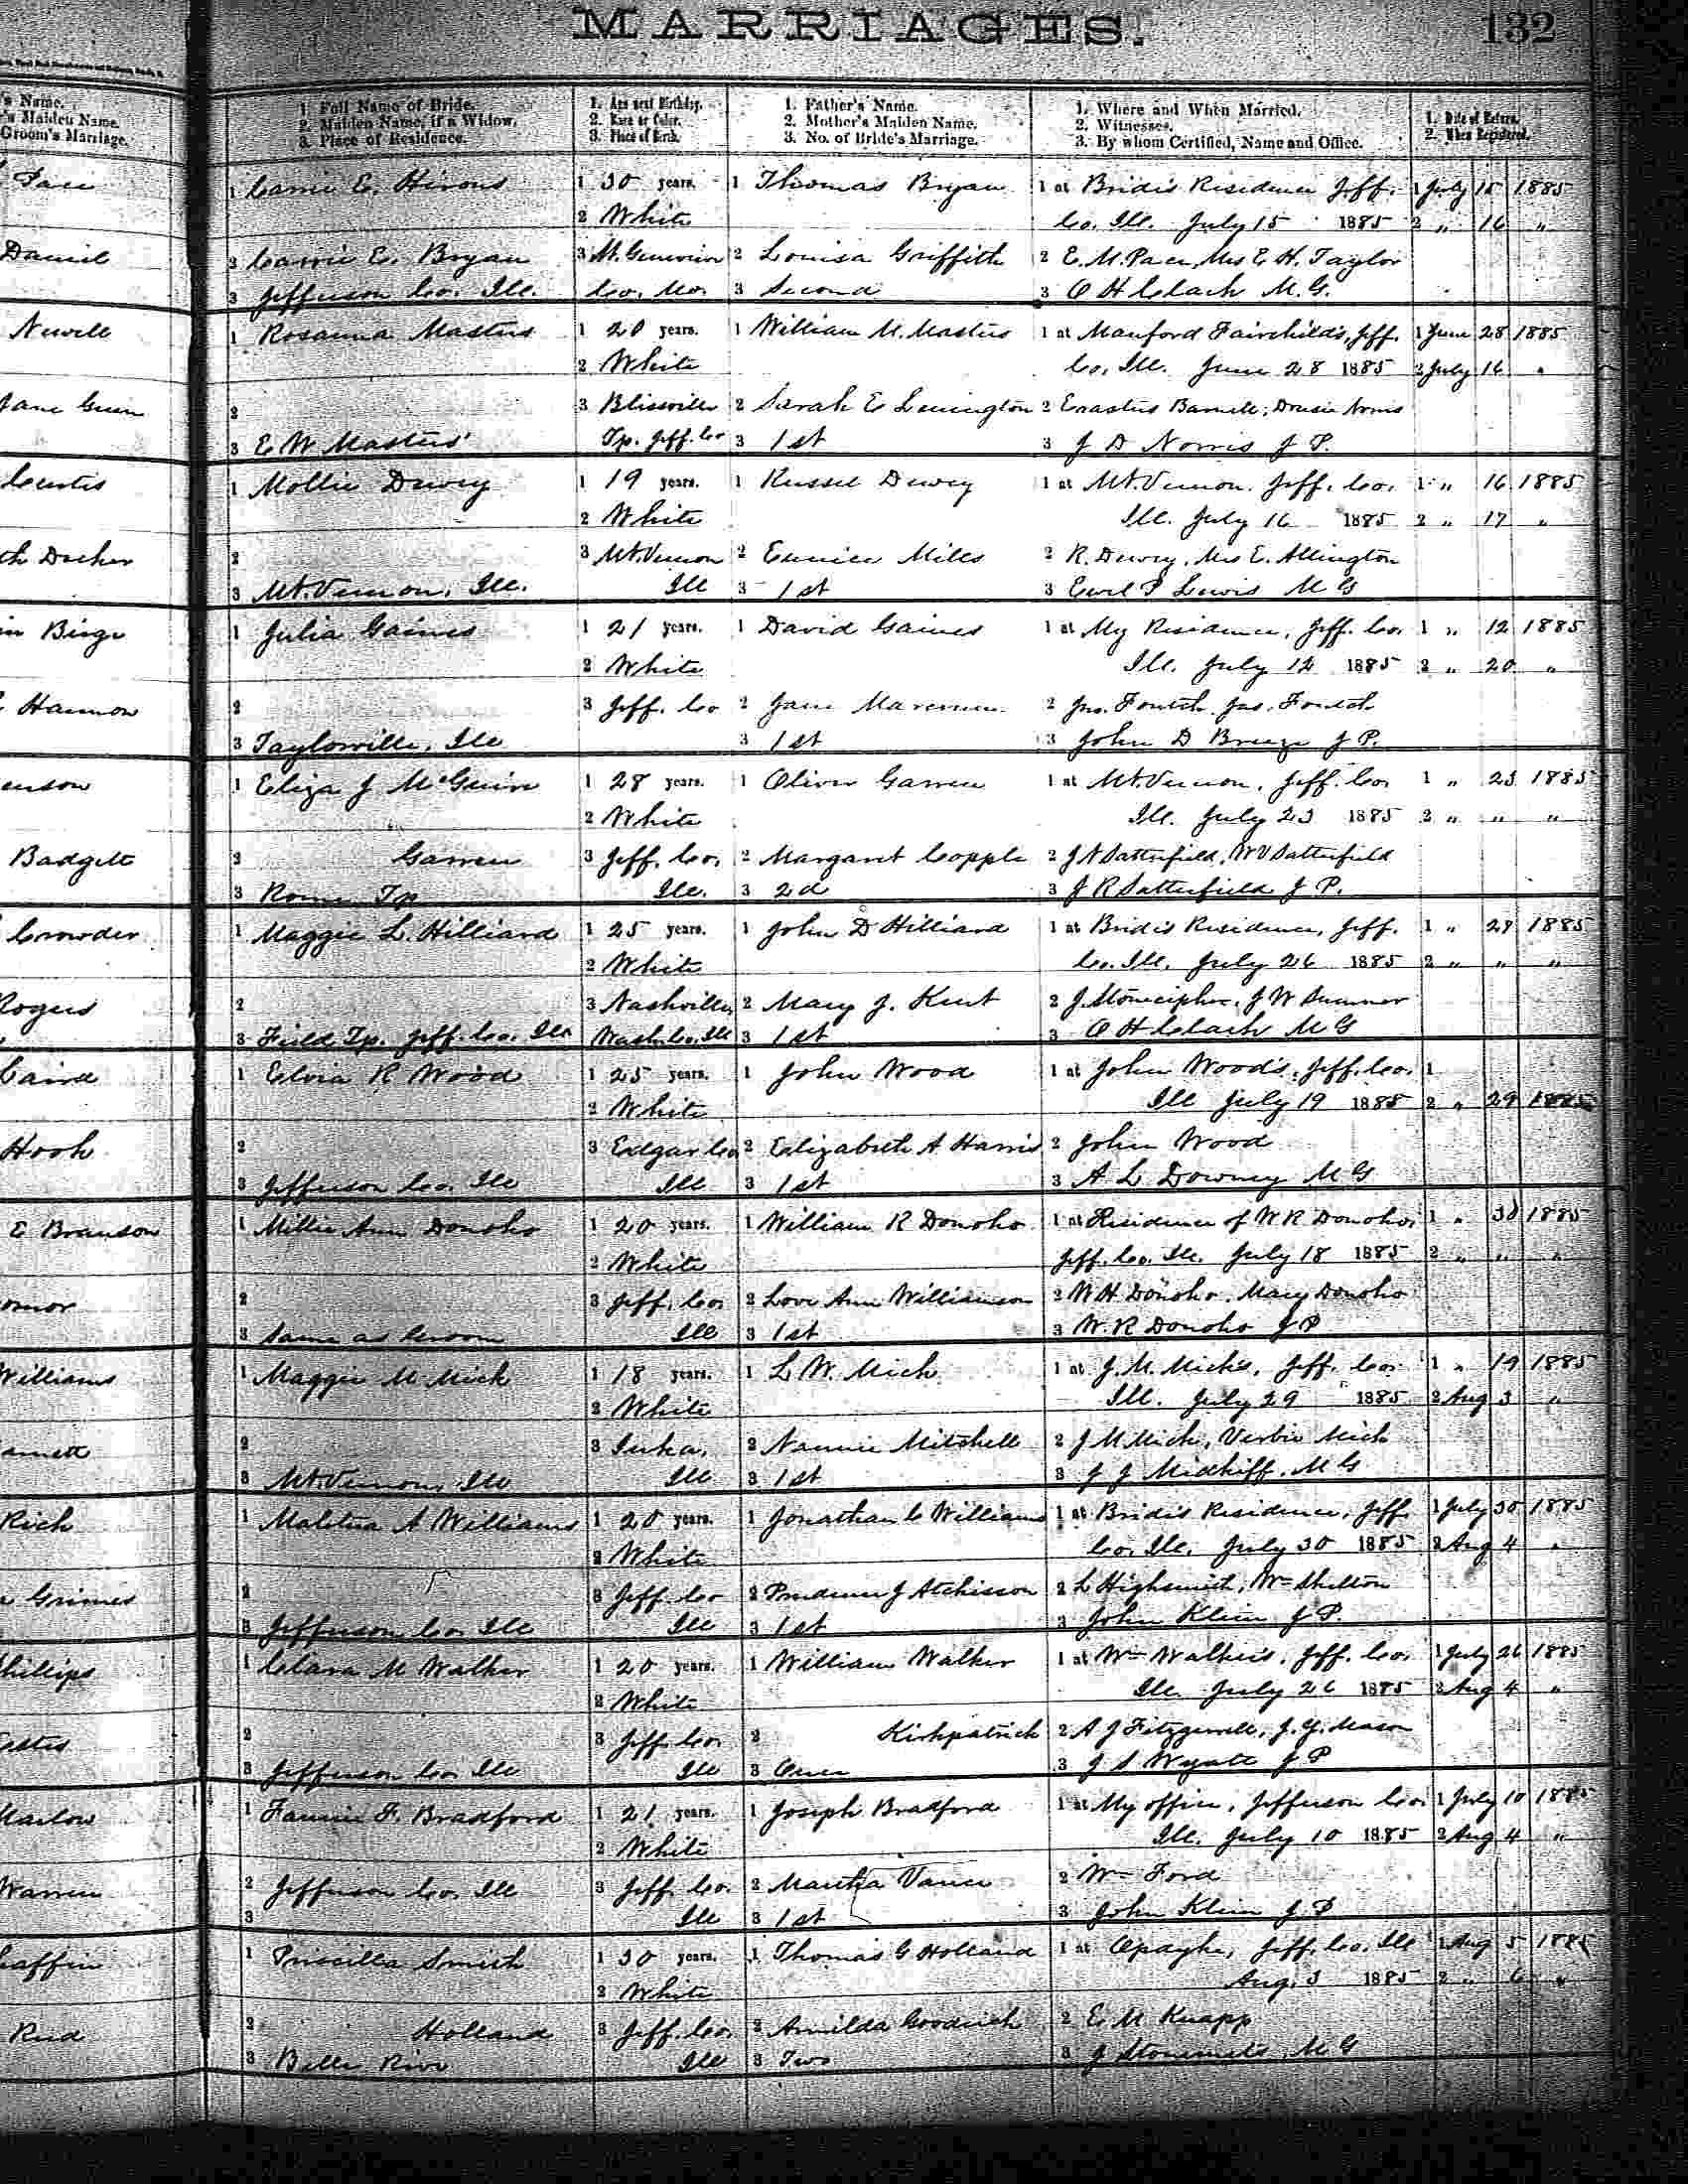 MARRIAGES.
132
's Name.
's Maiden Name.
Groom's Marriage.
1. Full Name of Bride.
2. Maiden Name, if a Widow.
3. Place of Residence.
1. Age next Birthday.
2. Race or Color.
3. Place of Birth.
1. Father's Name.
2. Mother's Maiden Name.
3. No. of Bride's Marriage.
1. Where and When Married.
2. Witnesses.
3. By whom Certified, Name and Office.
1. Date of Return.
2. When Registered.
Pace 1 Carrie E. Hirons 1 30 years. 1 Thomas Bryan 1 at Bride's Residence Jeff. 1 July 15 1885
2 White Co. Ill. July 15 1885 2 " 16 "
Daniel 2 Carrie E. Bryan 3 St. Genevieve 2 Louisa Griffith 2 E. M. Pace, Mrs E. H. Taylor
3 Jefferson Co. Ill. Co. Mo. 3 Second 3 O H Clark M. G.
Newell 1 Rosanna Masters 1 20 years. 1 William M. Masters 1 at Manford Fairchild's, Jeff. 1 June 28 1885
2 White Co. Ill. June 28 1885 2 July 16 "
Jane Green 2 3 Blissville 2 Sarah E Lenington 2 Erastus Barnell; Drusie Norris
3 E W Masters' Tp. Jeff. Co 3 1st 3 J D Norris J P.
Curtis 1 Mollie Dewey 1 19 years. 1 Russel Dewey 1 at Mt. Vernon. Jeff. Co. 1 " 16 1885
2 White Ill. July 16 1885 2 " 17 "
th Decker 2 3 Mt. Vernon 2 Eunice Mills 2 R. Dewey, Mrs E. Allington
3 Mt. Vernon, Ill. Ill 3 1st 3 Lewis M G
in Birge 1 Julia Gaines 1 21 years. 1 David Gaines 1 at My Residence, Jeff. Co. 1 " 12 1885
2 White Ill. July 12 1885 2 " 20 "
Hannon 2 3 Jeff. Co 2 Jane 2 Jno. Foutch. Jas. Foutch
3 Taylorville, Ill 3 1st 3 John D Breeze J P.
enson 1 Eliza J McGuire 1 28 years. 1 Oliver Garren 1 at Mt. Vernon, Jeff. Co. 1 " 23 1885
2 White Ill. July 23 1885 2 " " "
Badgett 2 Garren 3 Jeff. Co. 2 Margaret Copple 2 J N Satterfield, W V Satterfield
3 Rome Tp Ill. 3 2d 3 J R Satterfield J P.
Crowder 1 Maggie L. Hilliard 1 25 years. 1 John D Hilliard 1 at Bride's Residence, Jeff. 1 " 28 1885
2 White Co. Ill. July 26 1885 2 " " "
Rogers 2 3 Nashville, 2 Mary J. Kent 2 J. Stonecipher, J W Sumner
3 Field Tp. Jeff. Co. Ills Wash. Co. Ill 3 1st 3 O H Clark M G
Caird 1 Elvia R Wood 1 25 years. 1 John Wood 1 at John Wood's, Jeff. Co. 1
2 White Ill July 19 1885 2 " 29 1885
Hook 2 3 Edgar Co 2 Elizabeth A Harris 2 John Wood
3 Jefferson Co. Ill Ill 3 1st 3 A L Downey M G
E Branson 1 Millie Ann Donoho 1 20 years. 1 William R Donoho 1 at Residence of W R Donoho, 1 " 30 1885
2 White Jeff. Co. Ill. July 18 1885 2 " " "
omor 2 3 Jeff. Co. 2 Love Ann Williamson 2 W H Donoho. Mary Donoho
3 Same as Groom Ill 3 1st 3 W. R Donoho J P
Williams 1 Maggie M Mick 1 18 years. 1 L W. Mick 1 at J. M. Mick's, Jeff. Co. 1 " 19 1885
2 White Ill. July 29 1885 2 Aug 3 "
arnett 2 3 Iuka, 2 Nannie Mitchell 2 J M Mick, Verbie Mick
3 Mt. Vernon, Ill Ill 3 1st 3 J J Midkiff. M G
Rich 1 A Williams 1 20 years. 1 Jonathan C Williams 1 at Bride's Residence, Jeff 1 July 30 1885
2 White Co. Ill. July 30 1885 2 Aug 4 "
Grimes 2 3 Jeff. Co 2 Prudence J Atchisson 2 L Highsmith, Wm Shelton
3 Jefferson Co. Ill Ill 3 1st 3 John Klein J P.
hillips 1 Clara M Walker 1 20 years. 1 William Walker 1 at Wm Walker's. Jeff. Co. 1 July 26 1885
2 White Ill. July 26 1885 2 Aug 4 "
estes 2 3 Jeff. Co. 2 Kirkpatrick 2 A J Fitzgerrell, J. Y. Mason
3 Jefferson Co. Ill Ill 3 Once 3 J S Wyatt J P
Marlow 1 Fannie F. Bradford 1 21 years. 1 Joseph Bradford 1 at My office, Jefferson Co. 1 July 10 1885
2 White Ill. July 10 1885 2 Aug 4 "
Warren 2 Jefferson Co. Ill 3 Jeff. Co. 2 Martha Vance 2 Wm Ford
3 Ill 3 1st 3 John Klein J. P
haffin 1 Priscilla Smith 1 30 years. 1 Thomas G Holland 1 at Opdyke, Jeff. Co. Ill 1 Aug 5 1885
2 White Aug. 3 1885 2 " 6 "
Reid 2 Holland 3 Jeff. Co. 2 Armilda Goodrich 2 E M Knapp
3 Belle Rive Ill 3 Two 3 M G